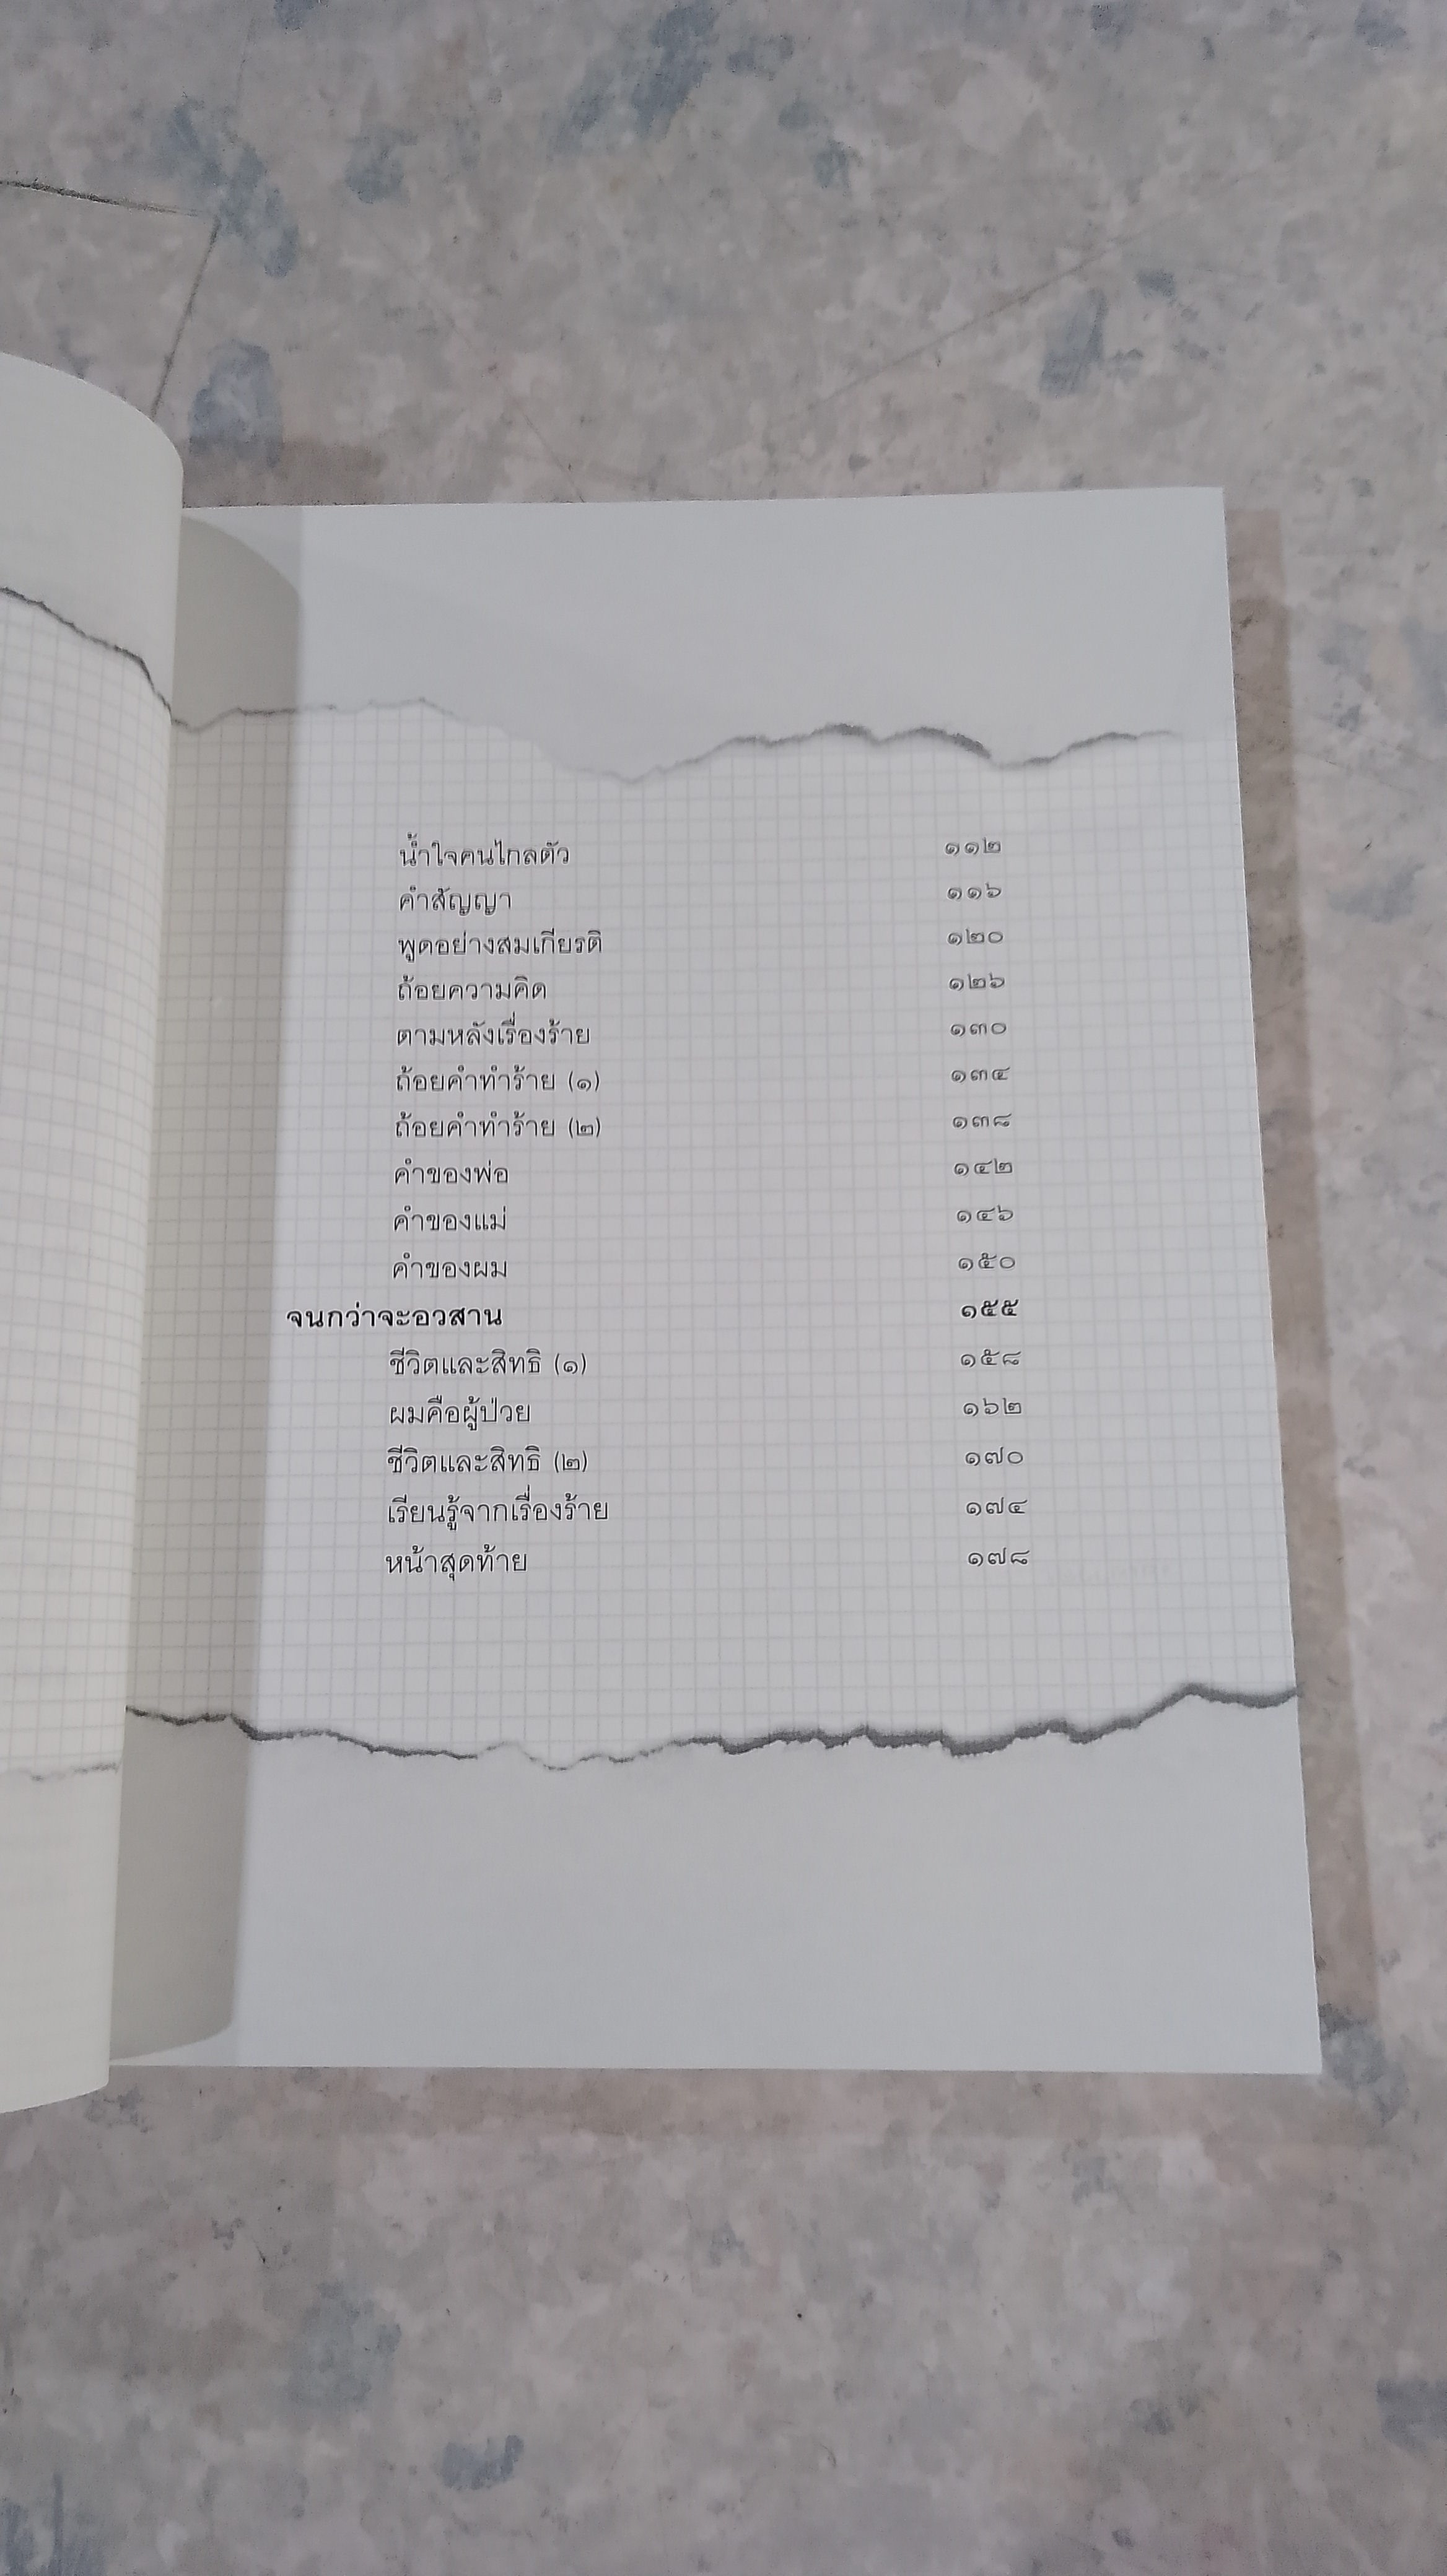 น้ำใจคนไกลตัว ๑๑๒
คำสัญญา ๑๑๖
พูดอย่างสมเกียรติ ๑๒๐
ถ้อยความคิด ๑๒๖
ตามหลังเรื่องร้าย ๑๓๐
ถ้อยคำทำร้าย (๑) ๑๓๔
ถ้อยคำทำร้าย (๒) ๑๓๘
คำของพ่อ ๑๔๒
คำของแม่ ๑๔๖
คำของผม ๑๕๐
จนกว่าจะอวสาน ๑๕๕
ชีวิตและสิทธิ (๑) ๑๕๘
ผมคือผู้ป่วย ๑๖๒
ชีวิตและสิทธิ (๒) ๑๗๐
เรียนรู้จากเรื่องร้าย ๑๗๔
หน้าสุดท้าย ๑๗๘